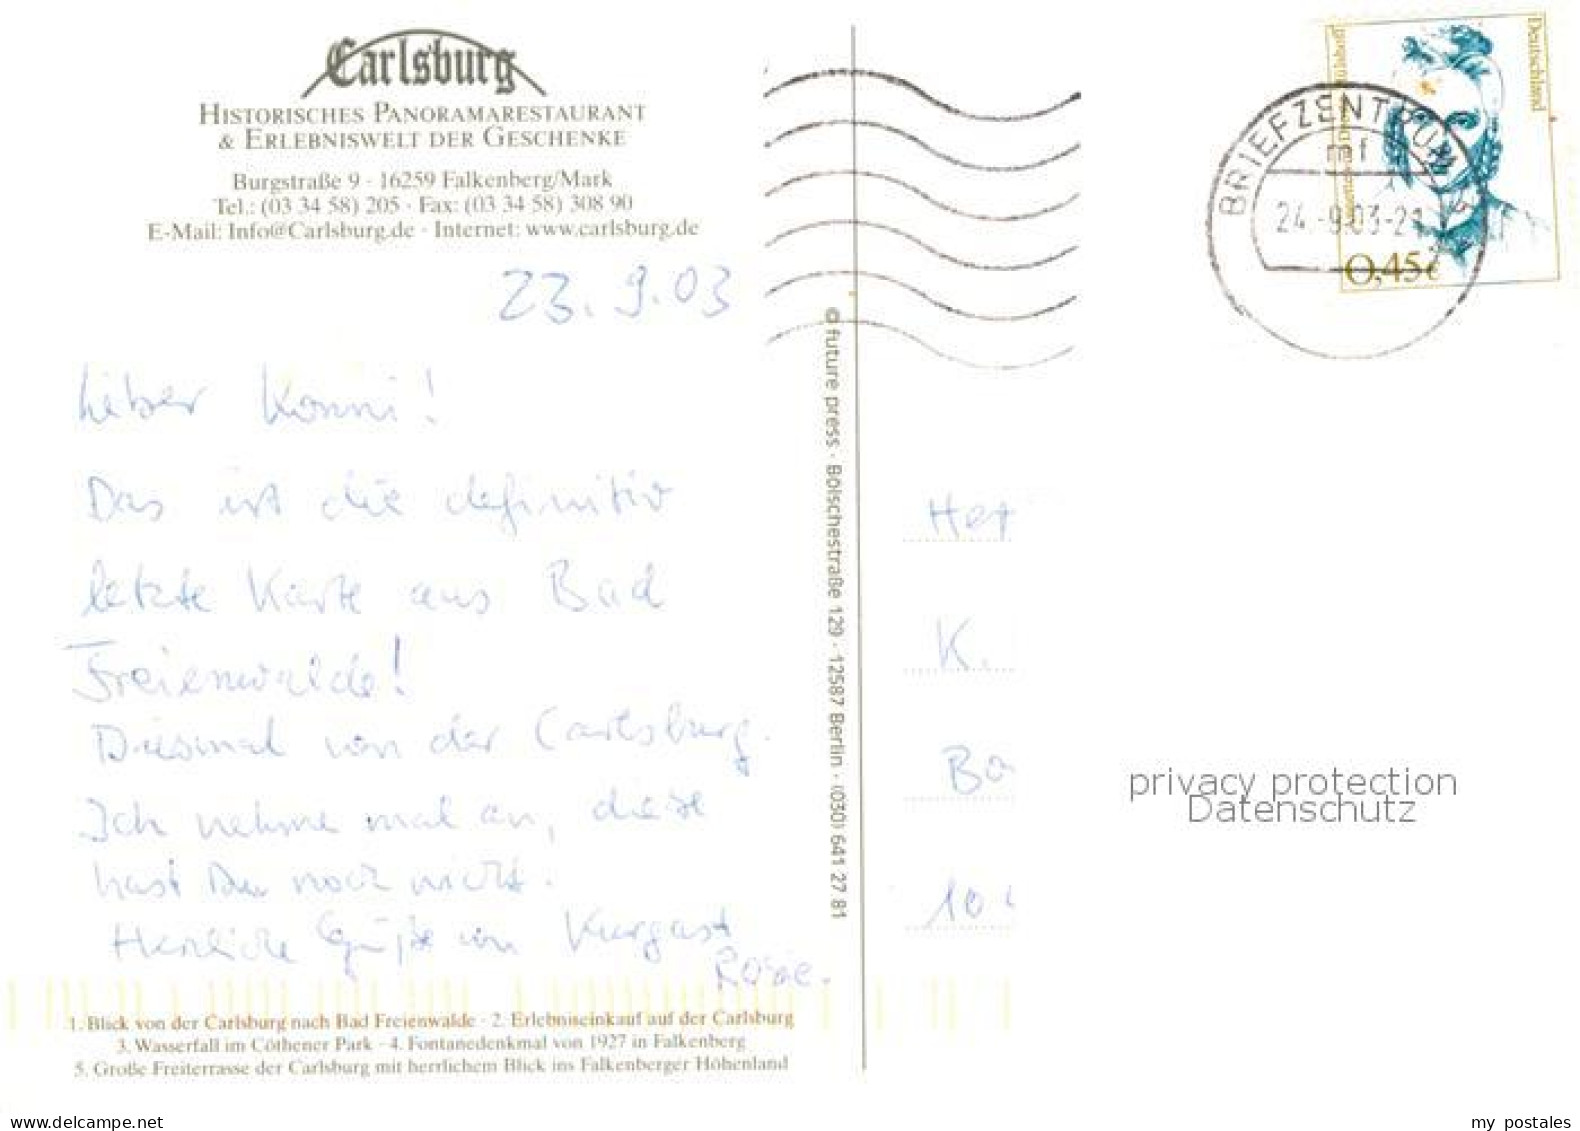 Carlsburg
HISTORISCHES PANORAMARESTAURANT
& ERLEBNISWELT DER GESCHENKE
Burgstraße 9 · 16259 Falkenberg/Mark
Tel.: (03 34 58) 205 · Fax: (03 34 58) 308 90
E-Mail: Info@Carlsburg.de · Internet: www.carlsburg.de
23.9.03
Lieber Konni!
Das ist die definitiv
letzte Karte aus Bad
Freienwalde!
Diesmal von der Carlsburg.
Ich nehme mal an, diese
hast Du noch nicht.
Herzliche Grüße von Kurgast
Rosie.
1. Blick von der Carlsburg nach Bad Freienwalde · 2. Erlebniseinkauf auf der Carlsburg
3. Wasserfall im Cöthener Park · 4. Fontanedenkmal von 1927 in Falkenberg
5. Große Freiterrasse der Carlsburg mit herrlichem Blick ins Falkenberger Höhenland
© future press · Bölschestraße 129 · 12587 Berlin · (030) 641 27 81
Deutschland
0,45€
BRIEFZENTRUM
mf
24.-9.03-21
Her
K.
Ba
10
privacy protection
Datenschutz
my postales